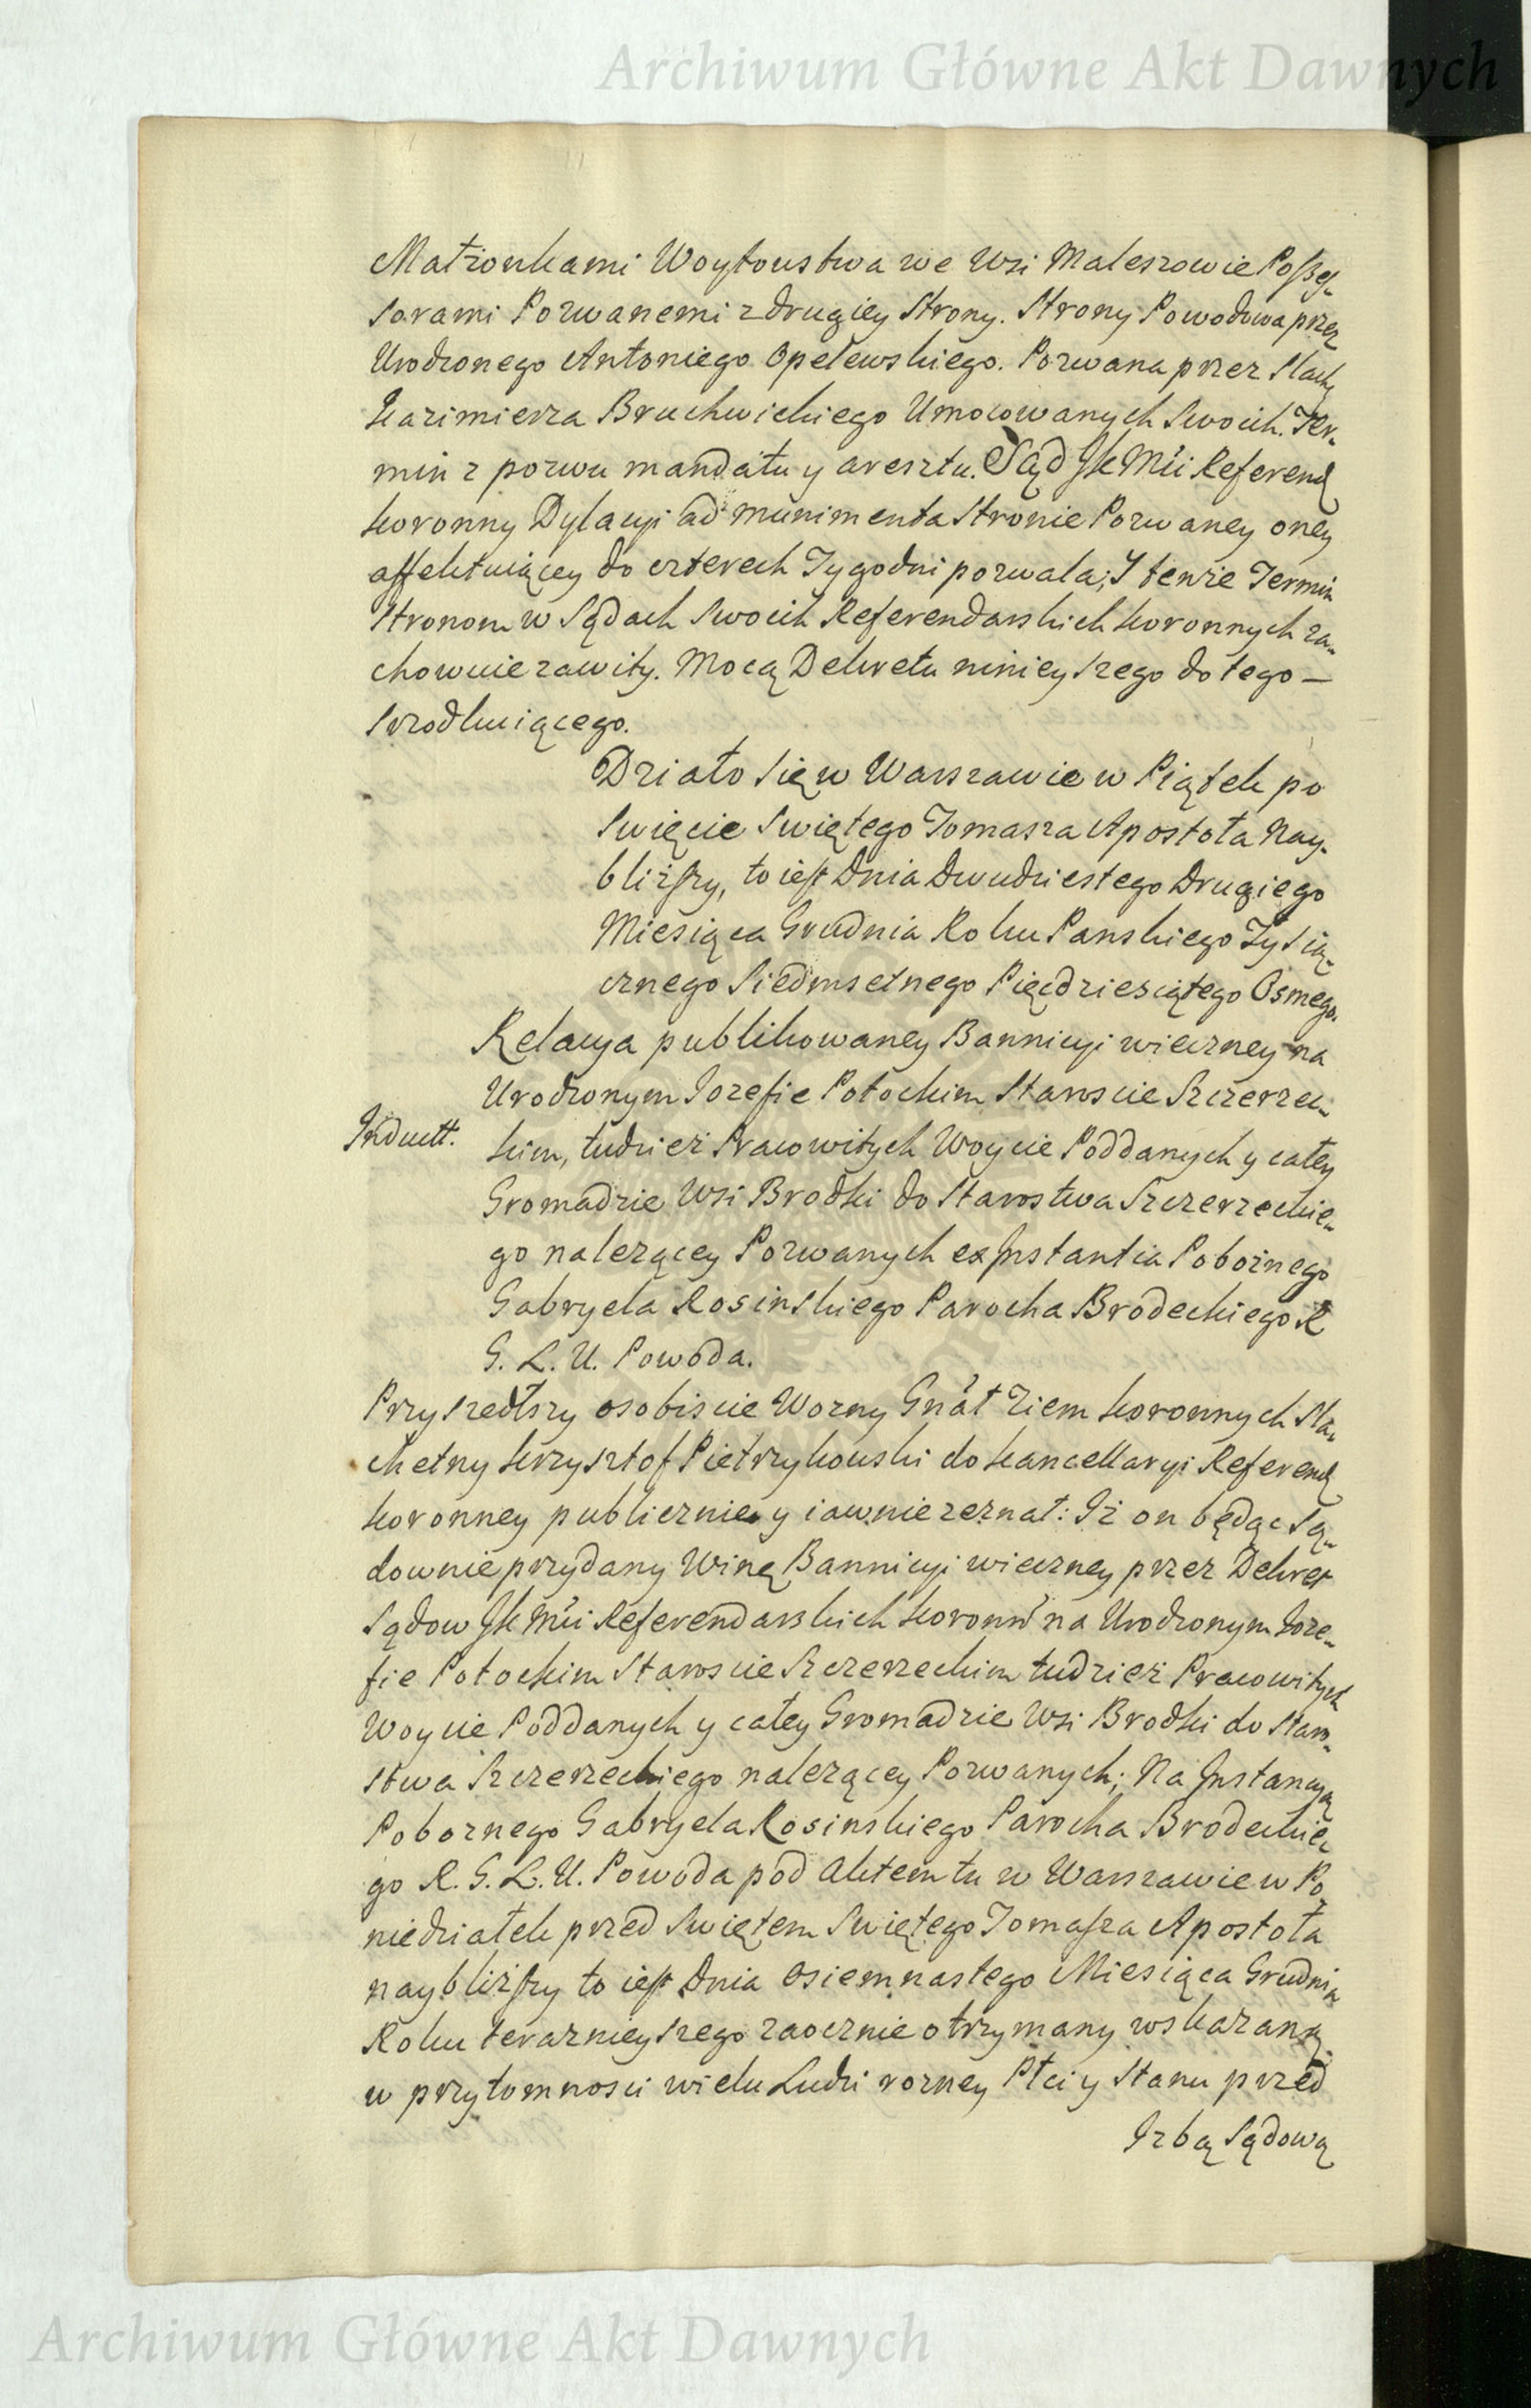 Archiwum Główne Akt Dawnych
Małżonkami Woytowstwa we Wsi Maleszowie Possess-
sorami Pozwanemi z drugiey Strony. Strony Powodowa przez
Urodzonego Antoniego Opelewskiego. Pozwana przez Slach
Kazimierza Bruchwickiego Umocowanych Swoich. Ter-
min z pozwu mandatu y aresztu. Sąd JK Mci Referend
Koronny Dylacyi ad munimenta Stronie Pozwaney oney
affektuiącey do czterech Tygodni pozwala; I tenże Termin
Stronom w Sądach Swoich Referendarskich Koronnych za-
chowuie zawity. Mocą Dekretu ninieyszego do tego –
srzodkuiącego.
Działo się w Warszawie w Piątek po
Swięcie Swiętego Tomasza Apostoła Nay-
bliższy, to iest Dnia Dwudziestego Drugiego
Miesiąca Grudnia Roku Panskiego Tysią-
cznego Siedmsetnego Pięcdziesiątego Osmego.
Relacya publikowaney Bannicyi wieczney na
Urodzonym Jozefie Potockim Staroscie Szczerzec-
Induct.
kim, tudzież Pracowitych Woycie Poddanych y całey
Gromadzie Wsi Brodki do Starostwa Szczerzeckie-
go nalezącey Pozwanych ex Instantia Pobożnego
Gabryela Rosinskiego Parocha Brodeckiego R
G. L. U. Powoda.
Przyszedłszy osobiscie Wozny Gnał Ziem Koronnych Sla-
chetny Krzysztof Pietrzykowski do Kancellaryi Referend
Koronney publicznie y iawnie zeznał: Iż on będąc Są-
downie przydany Winę Bannicyi wieczney przez Dekret
Sądow JK Mci Referendarskich Koronn na Urodzonym Joze-
fie Potockim Staroscie Szczerzeckim tudzież Pracowitych
Woycie Poddanych y całey Gromadzie Wsi Brodki do Staro-
stwa Szczerzeckiego nalezącey Pozwanych; Na Instancyą
Poboznego Gabryela Rosinskiego Parocha Brodeckie-
go R. G. L. U. Powoda pod Aktem tu w Warszawie w Po-
niedziałek przed Swiętem Swiętego Tomasza Apostoła
naybliższy to iest Dnia Osiemnastego Miesiąca Grudnia
Roku teraznieyszego zaocznie otrzymany wskazaną
w przytomnosci wielu Ludzi rozney Płci y Stanu przed
Izbą Sądową
Archiwum Główne Akt Dawnych